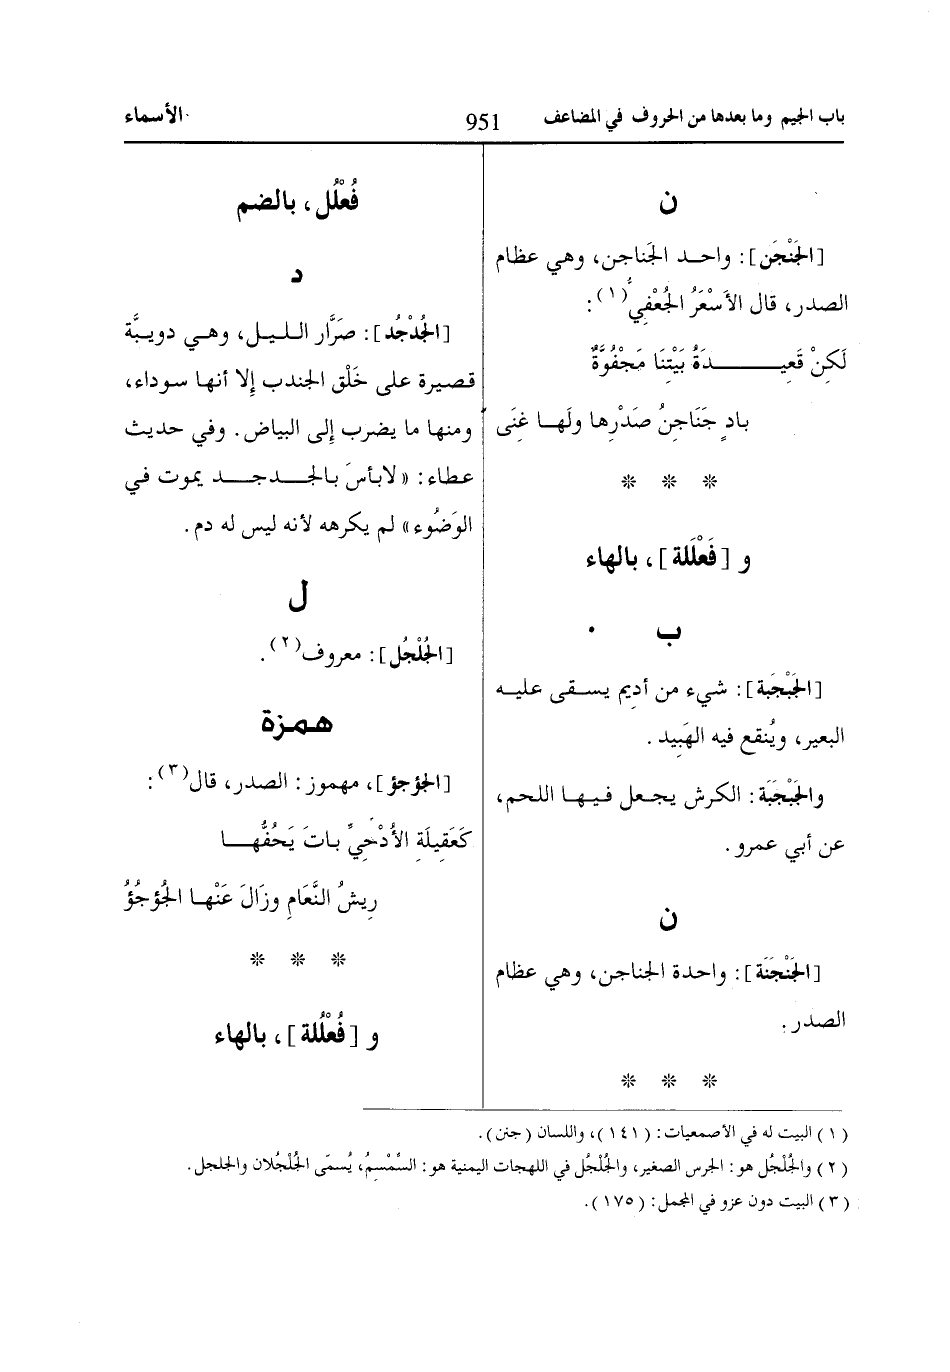 باب الجيم وما بعدها من الحروف في المضاعف 951 الأسماء
ن
[الجَنْجَن]: واحد الجَناجن، وهي عظام
الصدر، قال الأَسْعَرُ الجُعْفِيُّ(١):
لَكِنْ قَعِيـدَةُ بَيْتِنَا مَجْفُوَّةٌ
بادٍ جَنَاجِنُ صَدْرِها ولَهـا غِنَى
* * *
و [فَعْلَلَة]، بالهاء
ب
[الجَبْجَبة]: شيء من أديم يسـقى عليـه
البعير، ويُنقع فيه الهَبِيد.
والجَبْجَبَة: الكرش يجـعل فيـهـا اللحم،
عن أبي عمرو.
ن
[الجَنْجَنَة]: واحدة الجناجن، وهي عظام
الصدر.
* * *
فُعْلُل، بالضم
د
[الجُدْجُد]: صَرَّار الليل، وهي دويبَّة
قصيرة على خَلْق الجندب إلا أنها سوداء،
ومنها ما يضرب إلى البياض. وفي حديث
عطاء: «لابأسَ بالجـدجـد يموت في
الوَضُوء» لم يكرهه لأنه ليس له دم.
ل
[الجُلْجُل]: معروف(٢).
همزة
[الجؤجؤ]، مهموز: الصدر، قال(٣):
كَعَقِيلَةِ الأُدْحِيِّ باتَ يَحُفُّهـا
رِيشُ النَّعَامِ وزَالَ عَنْهـا الجُؤجُؤُ
* * *
و [فُعْلُلة]، بالهاء
(١) البيت له في الأصمعيات: (١٤١)، واللسان (جنن).
(٢) والجُلْجُل هو: الجرس الصغير، والجُلْجُل في اللهجات اليمنية هو: السِّمْسِمُ، يُسمّى الجُلْجُلان والجلجل.
(٣) البيت دون عزو في المجمل: (١٧٥).